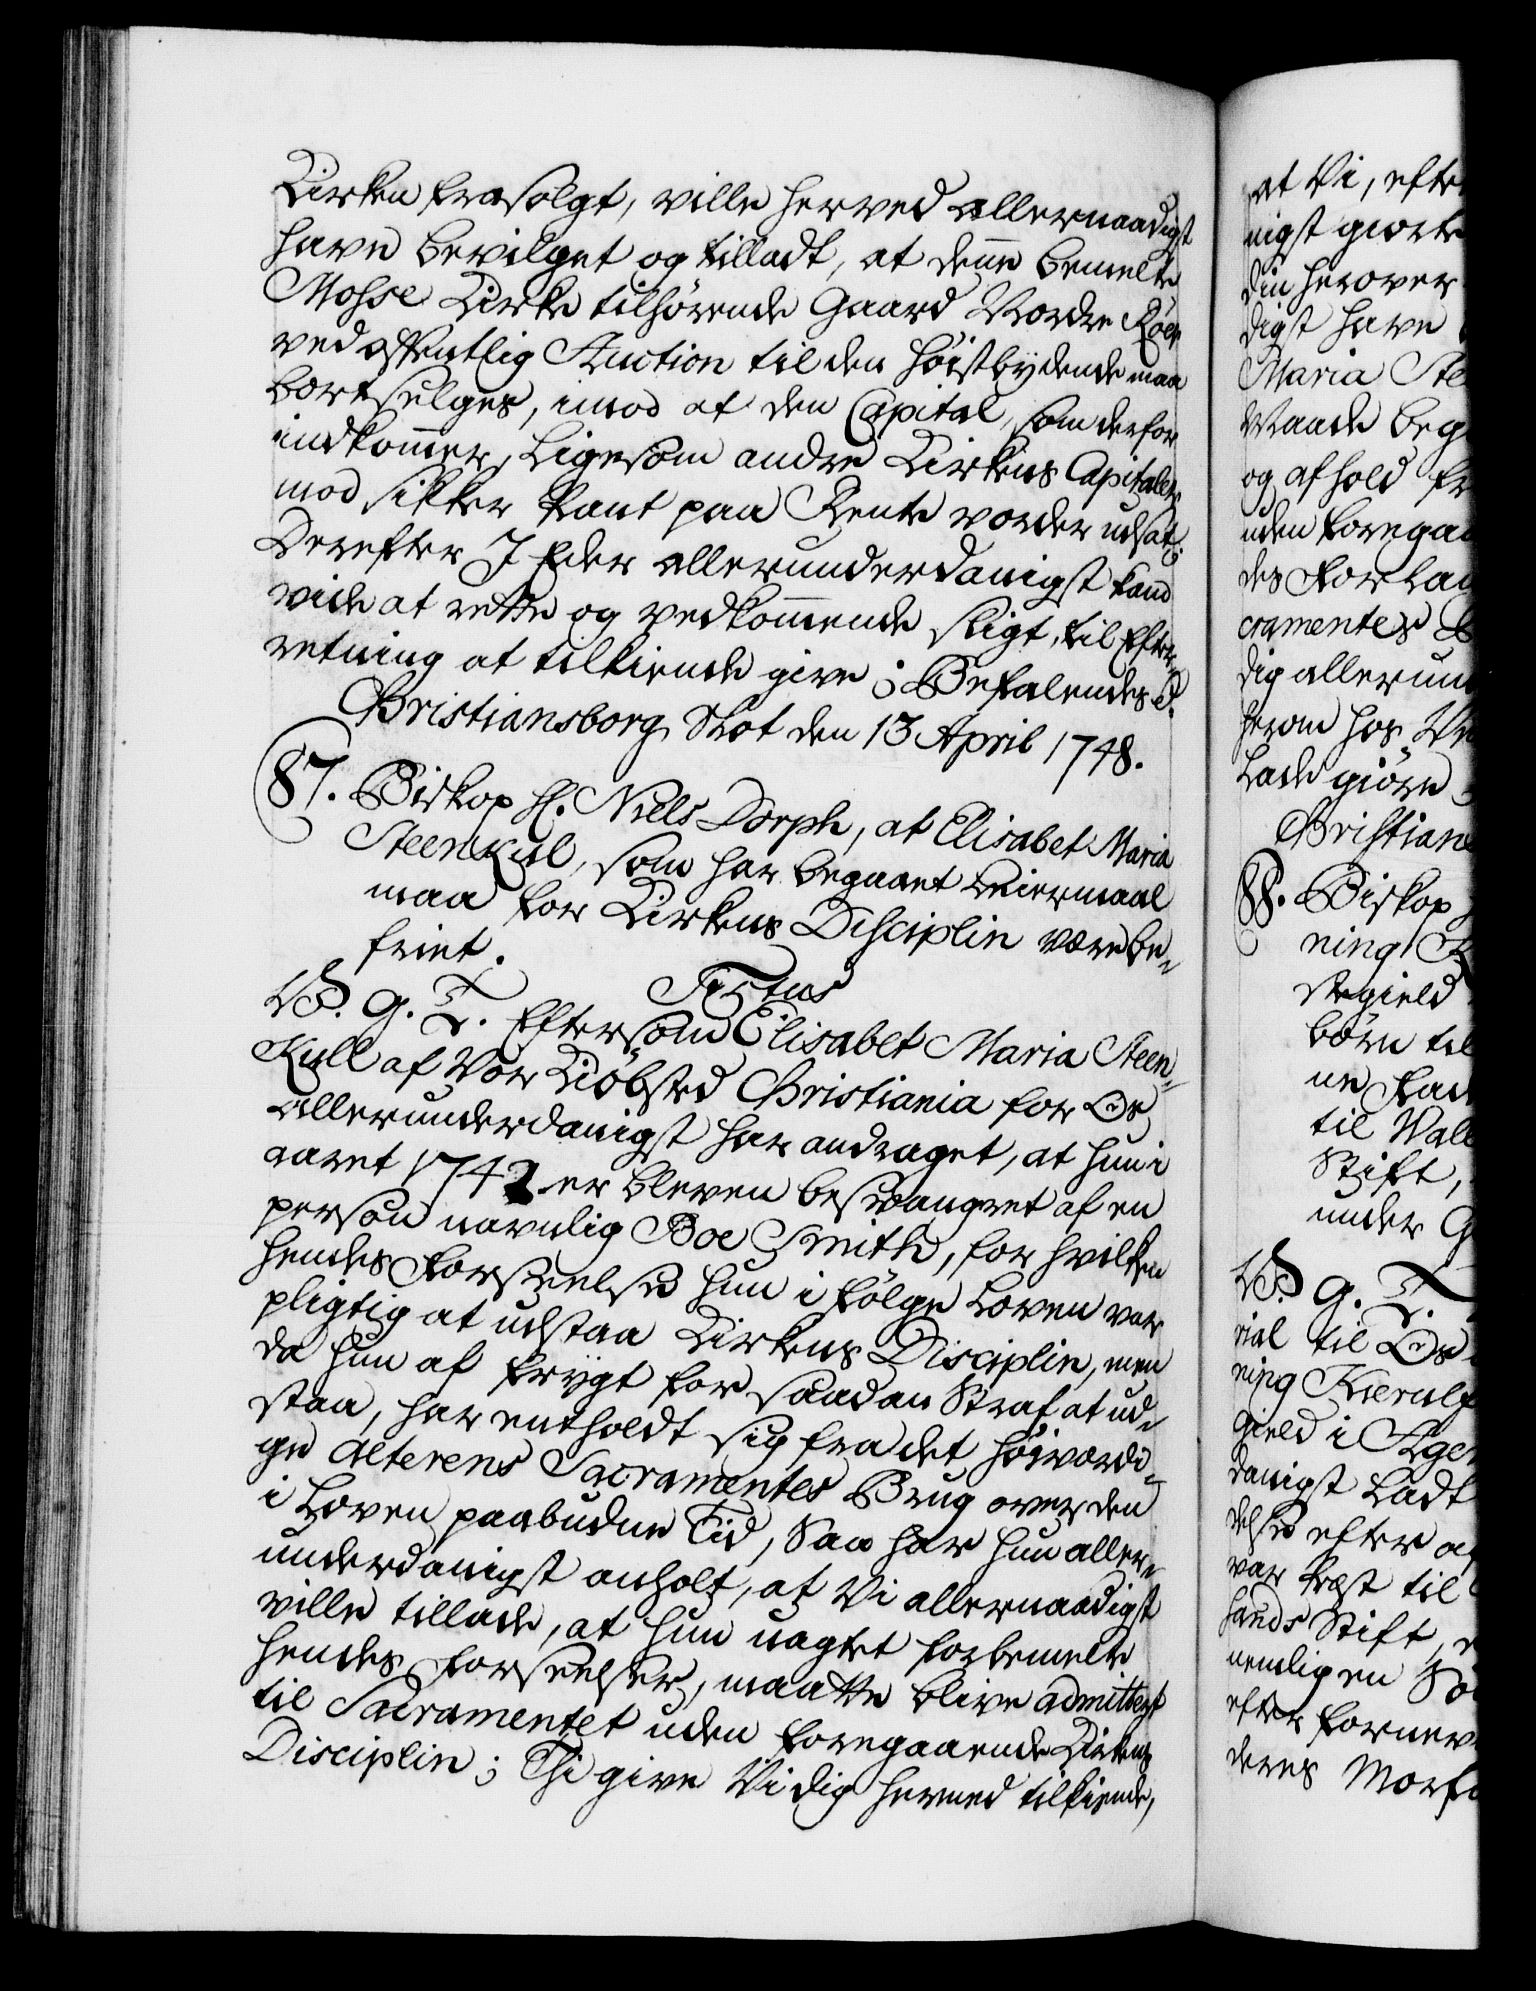 Kirken frasolgt, ville herved allernaadigst
have bevilget og tilladt, at denne bemelte
Mosse Kirke tilhørende Gaard Nordre Röer
ved offentlig Auction til den höistbydende maa
bortselges, imod at den Capital, som derfor
indkommer, ligesom andre Kirkens Capitaler
mod sikker Pant paa Rente vorder udsat;
Derefter I Eder allerunderdanigst kand
vide at rette og vedkommende sligt, til Efter-
retning at tilkiende give; Befalendes p.
Christiansborg Slot den 13 April 1748.
87. Biskop H. Niells Dorph, at Elisabet Maria
Steenkul, som har begaaet Leiermaal
maa for Kirkens Disciplin være be-
friet.
V. G. T. Eftersom Elisabet Maria Steen-
Kull af Vor Kiöbsted Christiania for Os
allerunderdanigst har andraget, at hun i
aaret 1742 er bleven besvangret af en
person navnlig Boe Smith, for hvilken
hendes Forseelse hun i fölge Loven var
pligtig at udstaa Kirkens Disciplin, men
da hun af frygt for saadan Straf at ud-
staa, har entholdt sig fra det höiværdi-
ge Alterens Sacramentes Brug over den
i Loven paabudne Tid, Saa har hun aller-
underdanigst anholt, at Vi allernaadigst
ville tillade, at hun uagtet forbemelte
hendes Forseelser, maatte blive admitteret
til Sacramentet uden foregaaende Kirkens
Disciplin; Thi give Vi dig hermed tilkiende,
at Vi, efter
nigst giorte
din herover
digst have
Maria Stee
Maade beg
og afhold fr
uden foregaa
des Forla
cramentes B
dig allerun
herom hos V
lade giöre
Christians
88. Biskop
ning K
stegield
börn til
ne Fad
til Vall
Stift,
under G
V. G. T.
rial til Os
ning Kierulf
gield i Agger
danigst ladt
delse efter a
var Præst til
hands Stift,
nemlig en Sö
efter fornev
deres Morf